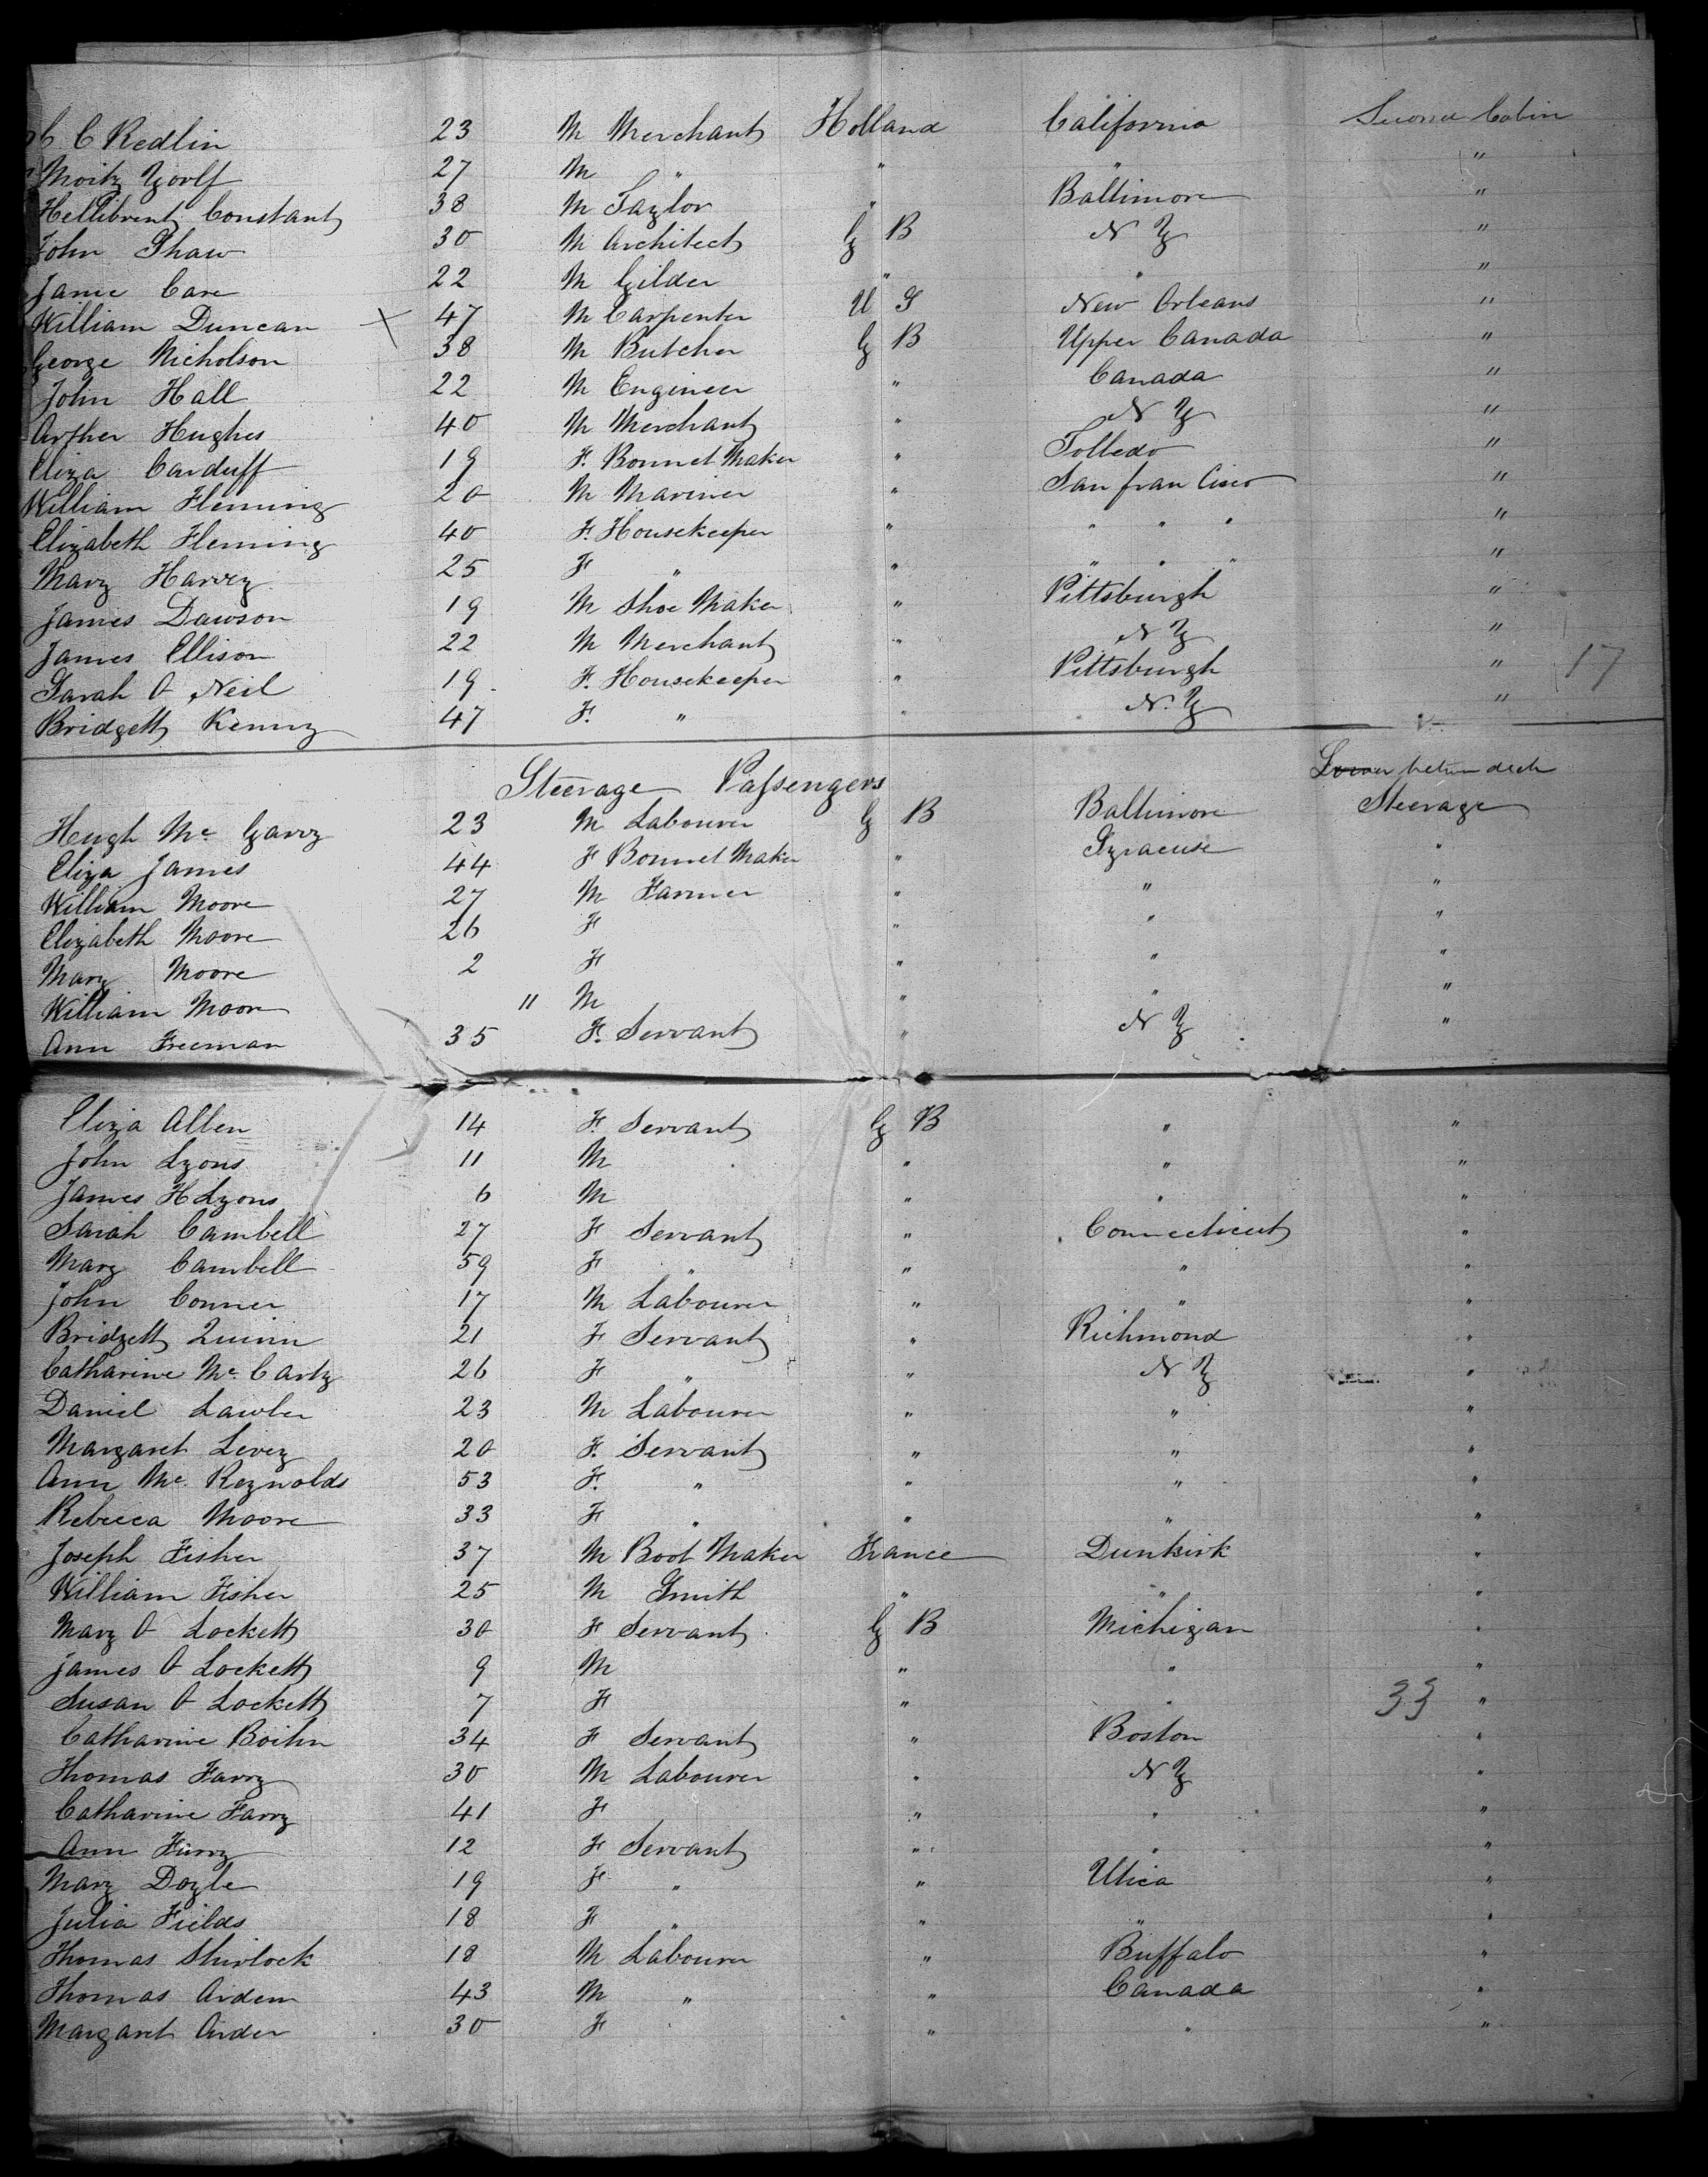 C C Redlin 23 M Merchant Holland California Second Cabin
Moritz Yorlf 27 M " " " "
Hellibrent Constant 38 M Taylor " Baltimore "
John Shaw 30 M Architect G B N Y "
Jame Care 22 M Gilder " " "
William Duncan X 47 M Carpenter U S New Orleans "
George Nicholson 38 M Butcher G B Upper Canada "
John Hall 22 M Engineer " Canada "
Arther Hughes 40 M Merchant " N Y "
Eliza Carduff 19 F. Bonnet Maker " Tolledo "
William Fleming 20 M Mariner " San fran Cisco "
Elizabeth Fleming 40 F. Housekeeper " " " " "
Mary Harvey 25 F " " " " " "
James Dawson 19 M Shoe Maker " Pittsburgh "
James Ellison 22 M Merchant " N Y "
Sarah O Neil 19 F. Housekeeper " Pittsburgh " 17
Bridgett Kenny 47 F. " " N. Y "
Steerage Passengers Lower betwn deck
Hugh Mc Garry 23 M Labourer G B Baltimore Steerage
Eliza James 44 F Bonnet Maker " Syracuse "
William Moore 27 M Farmer " " "
Elizabeth Moore 26 F " " "
Mary Moore 2 F " " "
William Moore 11 M " " "
Ann Freeman 35 F. Servant " N Y "
Eliza Allen 14 F. Servant G B " "
John Lyons 11 M " " "
James H Lyons 6 M " " "
Sarah Cambell 27 F Servant " Connecticut "
Mary Cambell 59 F " " " "
John Conner 17 M Labourer " " "
Bridgett Quinn 21 F Servant " Richmond "
Catharine Mc Carty 26 F " " N Y "
Daniel Lawler 23 M Labourer " " "
Margaret Levey 20 F. Servant " " "
Ann Mc Reynolds 53 F. " " " "
Rebecca Moore 33 F " " " "
Joseph Fisher 37 M Boot Maker France Dunkirk "
William Fisher 25 M Smith " " "
Mary O Lockett 30 F Servant G B Michigan "
James O Lockett 9 M " " "
Susan O Lockett 7 F " " 33 "
Catharine Boihn 34 F Servant " Boston "
Thomas Farry 30 M Labourer " N Y "
Catharine Farry 41 F " " "
Ann Farry 12 F Servant " " "
Mary Doyle 19 F " " Utica "
Julia Fields 18 F " " " "
Thomas Shirlock 18 M Labourer " Buffalo "
Thomas Ardern 43 M " " Canada "
Margaret Arder 30 F " " "